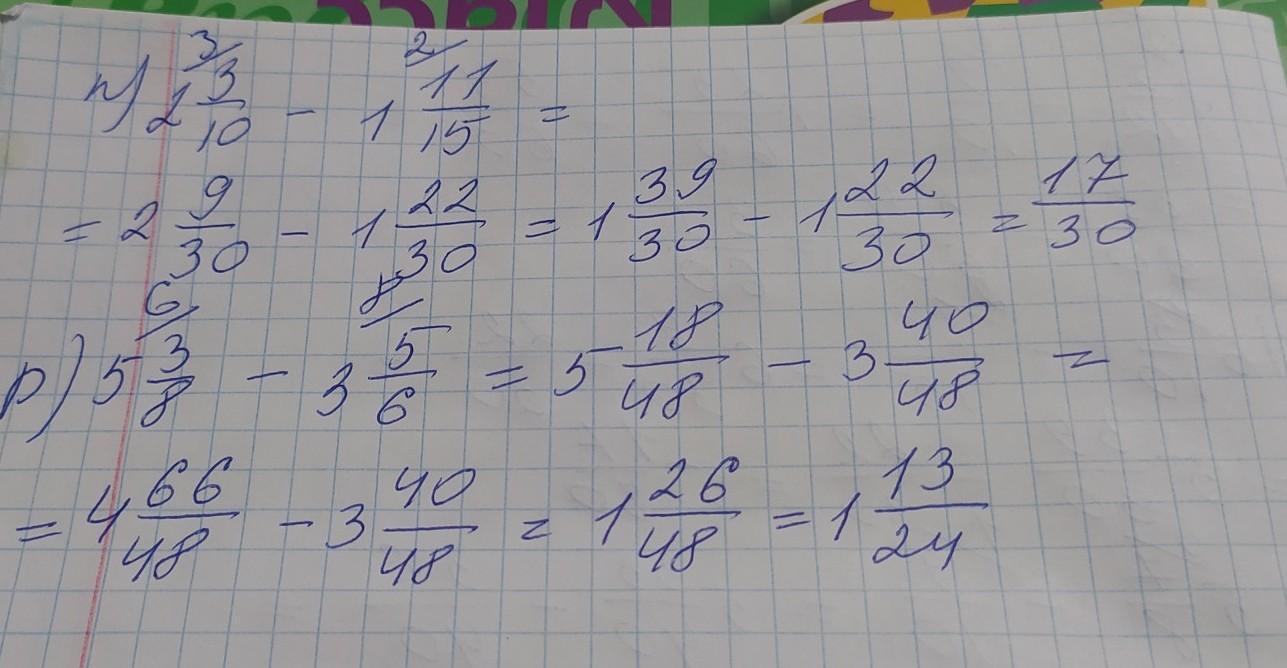 п) 2 3/10 (3/) - 1 11/15 (2/) =
= 2 9/30 - 1 22/30 = 1 39/30 - 1 22/30 = 17/30
р) 5 3/8 (6/) - 3 5/6 (8/) = 5 18/48 - 3 40/48 =
= 4 66/48 - 3 40/48 = 1 26/48 = 1 13/24